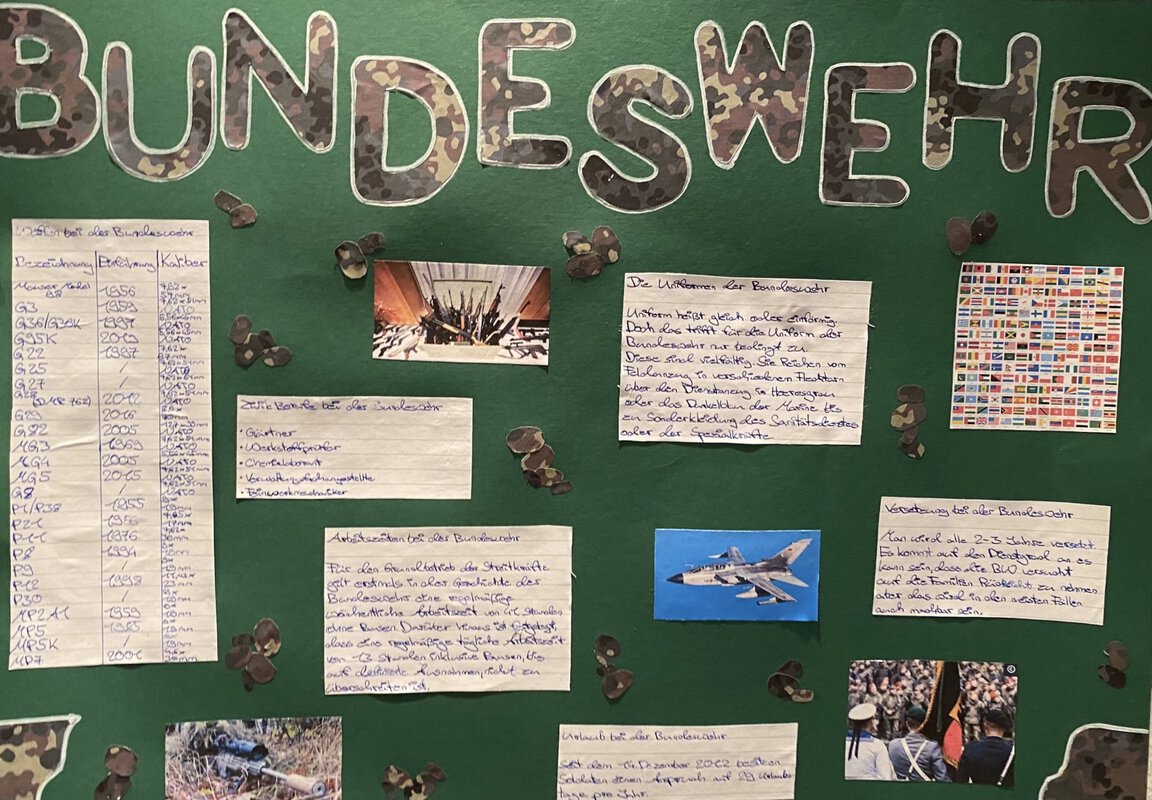 BUNDESWEHR
bei der Bundeswehr
Bezeichnung Einführung Kaliber
1956
G3 1959
G36/G36K 1997
G95K
G22 1997
G25 /
G27 /
G28 2012
G29 2016
G82 2005
MG3 1969
MG4 2005
MG5 2015
G8 /
P1/P38 1955
P2-1 1956
P11 1976
P8 1994
P9 /
P12 1998
P30 /
MP2A1 1959
MP5 1985
MP5K
MP7 2001
Zivile Berufe bei der Bundeswehr
• Gärtner
• Werkstoffprüfer
• Chemielaborant
• Verwaltungsfachangestellte
• Feinwerkmechaniker
Arbeitszeiten bei der Bundeswehr
Für den Grundbetrieb der Streitkräfte
gilt erstmals in der Geschichte der
Bundeswehr eine regelmäßige
wöchentliche Arbeitszeit von 41 Stunden
ohne Pausen. Darüber hinaus ist festgelegt,
dass eine regelmäßige tägliche Arbeitszeit
von 13 Stunden inklusive Pausen, bis
auf definierte Ausnahmen, nicht zu
überschreiten ist.
Die Uniformen der Bundeswehr
Uniform heißt gleich oder einförmig.
Doch das trifft für die Uniform der
Bundeswehr nur bedingt zu.
Diese sind vielfältig. Sie Reichen vom
Feldanzug in verschiedenen Flecktarn
über den Dienstanzug in Heeresgrau
oder das Dunkelblau der Marine bis
zu Sonderkleidung des Sanitätsdienstes
oder der Spezialkräfte.
Versetzung bei der Bundeswehr
Man wird alle 2-3 Jahre versetzt.
Es kommt auf den Dienstgrad an es
kann sein, dass die BW versucht
auf die Familien Rücksicht zu nehmen
aber das wird in den meisten Fällen
nicht machbar sein.
Urlaub bei der Bundeswehr
Seit dem Dezember 2012 besitzen
Soldaten einen Anspruch auf 29 Urlaubs-
tage pro Jahr.
©